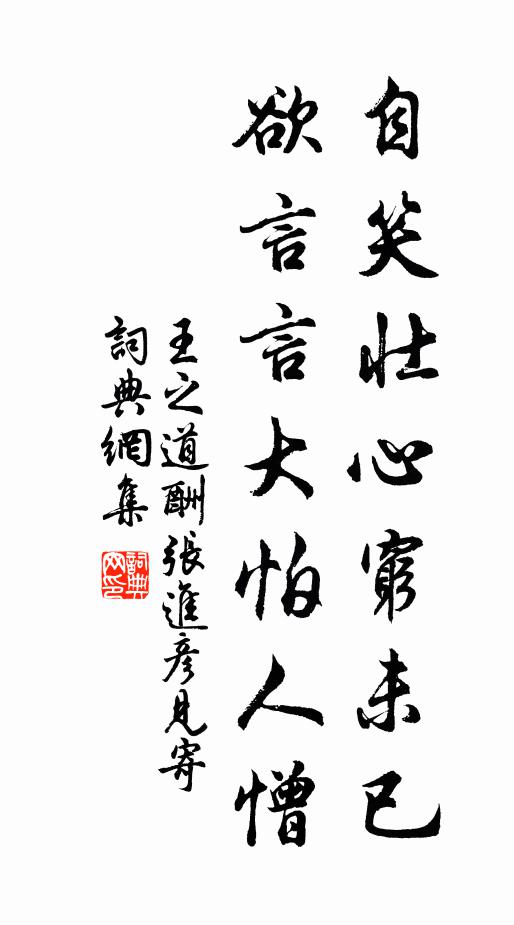 自笑壯心窮未已
欲言言大怕人憎
王之道酬張進彥見寄
詞典網集
詞典网印